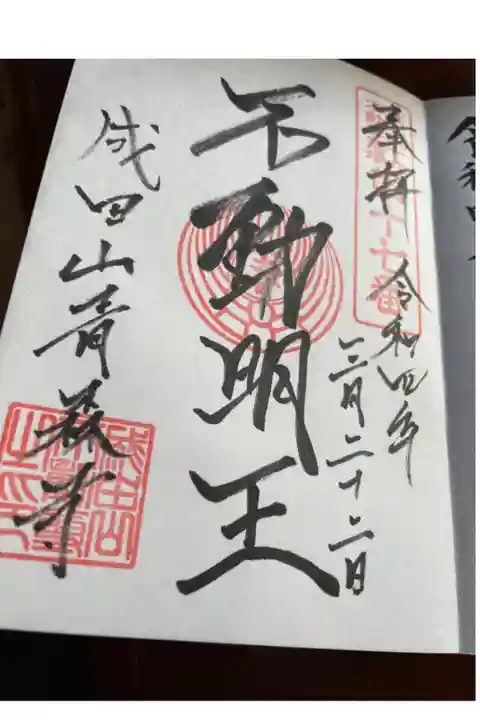 奉拝 令和四年
三月二十二日
不動明王
成田山青森寺
令和四